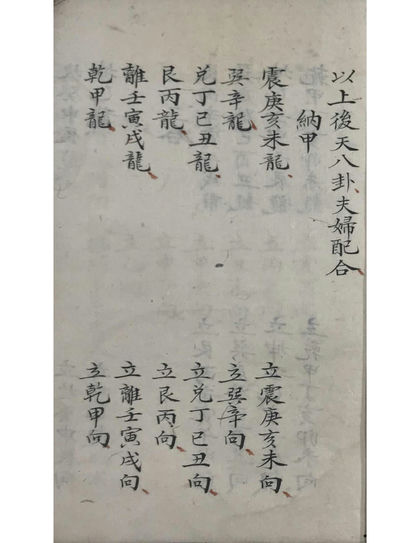 以上後天八卦夫婦配合
納甲
震庚亥未龍 立震庚亥未向
巽辛龍 立巽辛向
兌丁巳丑龍 立兌丁巳丑向
艮丙龍 立艮丙向
離壬寅戌龍 立離壬寅戌向
乾甲龍 立乾甲向